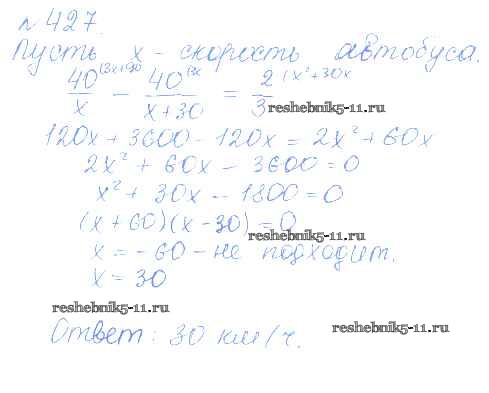 № 427.
Пусть x – скорость автобуса.
40^(3x+90 / x – 40^(3x / x+30 = 2^(x²+30x / 3
reshebnik5-11.ru
120x + 3600 – 120x = 2x² + 60x
2x² + 60x – 3600 = 0
x² + 30x – 1800 = 0
(x + 60)(x – 30) = 0
reshebnik5-11.ru
x = – 60 – не подходит.
x = 30
reshebnik5-11.ru
Ответ: 30 км/ч.
reshebnik5-11.ru